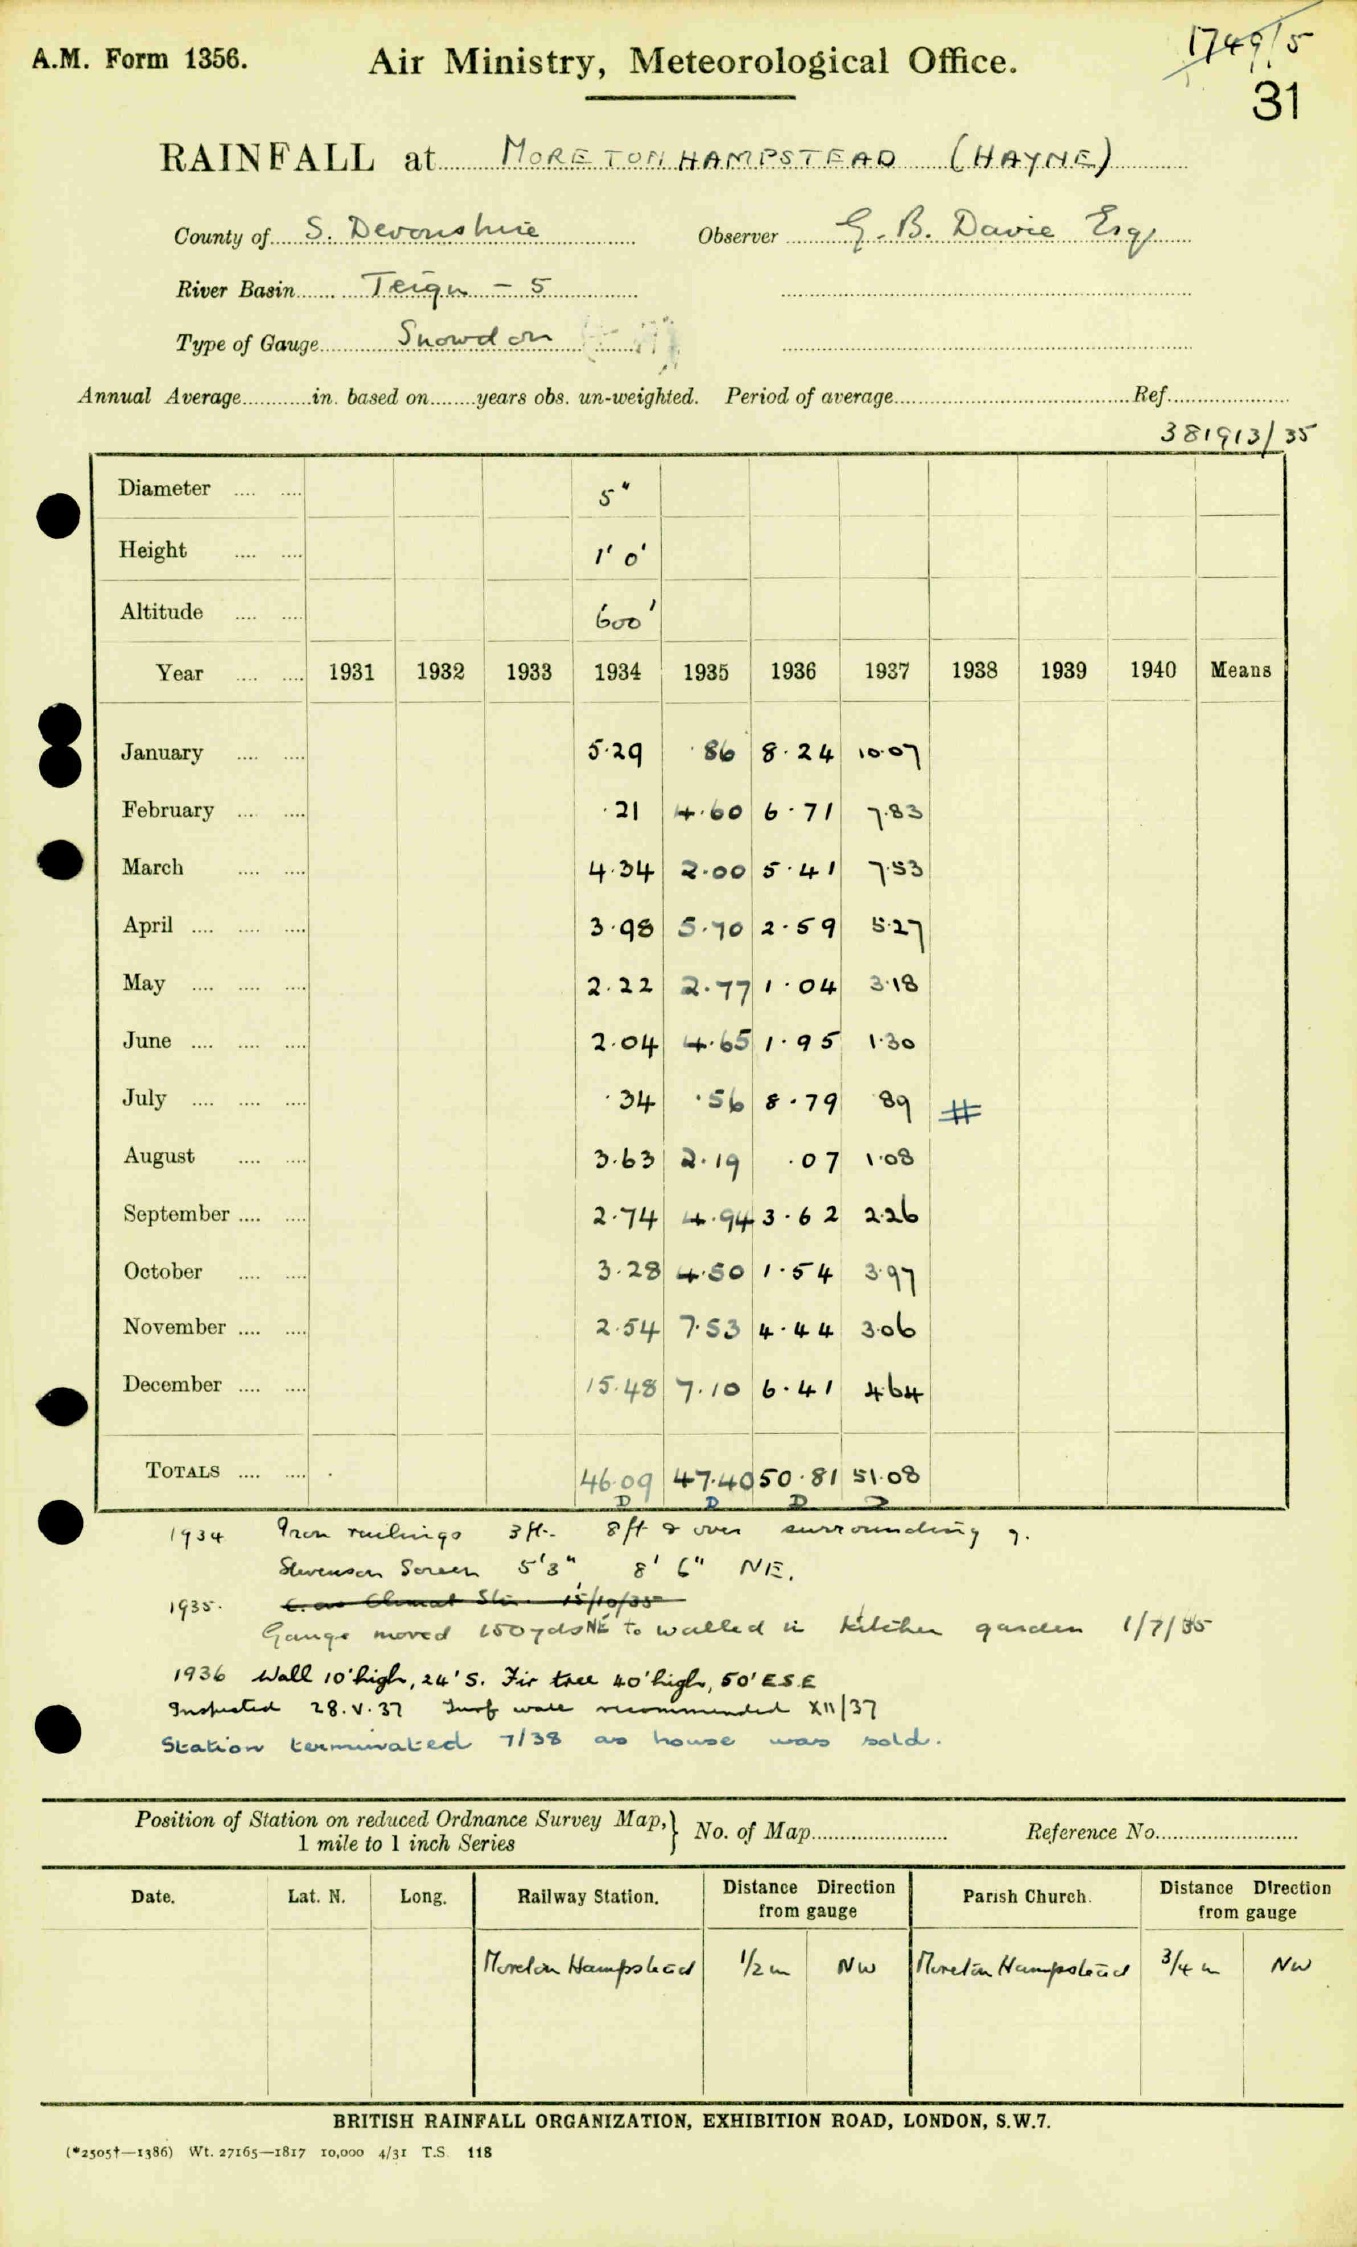 1749/5
A.M. Form 1356. Air Ministry, Meteorological Office.
31
RAINFALL at MORETONHAMPSTEAD (HAYNE)
County of S. Devonshire Observer G. B. Davie Esq,
River Basin Teign - 5
Type of Gauge Snowdon
Annual Average in. based on years obs. un-weighted. Period of average Ref.
381913/35
Diameter 5"
Height 1' 0'
Altitude 600'
Year 1931 1932 1933 1934 1935 1936 1937 1938 1939 1940 Means
January 5.29 .86 8.24 10.07
February .21 4.60 6.71 7.83
March 4.34 2.00 5.41 7.53
April 3.98 5.70 2.59 5.27
May 2.22 2.77 1.04 3.18
June 2.04 4.65 1.95 1.30
July .34 .56 8.79 89 #
August 3.63 2.19 .07 1.08
September 2.74 4.94 3.62 2.26
October 3.28 4.50 1.54 3.97
November 2.54 7.53 4.44 3.06
December 15.48 7.10 6.41 4.64
TOTALS 46.09 47.40 50.81 51.08
D D D D
1934 Iron railings 3ft. 8ft & over surrounding g.
Stevenson Screen 5'3" 8' 6" NE.
1935. C. as Climat Stn. 15/10/35
Gauge moved 150yds NE to walled in kitchen garden 1/7/35
1936 Wall 10' high, 24' S. Fir tree 40' high, 50' E.S.E
Inspected 28.V.37 Turf wall recommended XII/37
Station terminated 7/38 as house was sold.
Position of Station on reduced Ordnance Survey Map, } No. of Map Reference No.
1 mile to 1 inch Series
Date. Lat. N. Long. Railway Station. Distance Direction from gauge Parish Church. Distance Direction from gauge
Moreton Hampstead 1/2 m NW Moreton Hampstead 3/4 m NW
BRITISH RAINFALL ORGANIZATION, EXHIBITION ROAD, LONDON, S.W.7.
(*2505†—1386) Wt. 27165—1817 10,000 4/31 T.S. 118